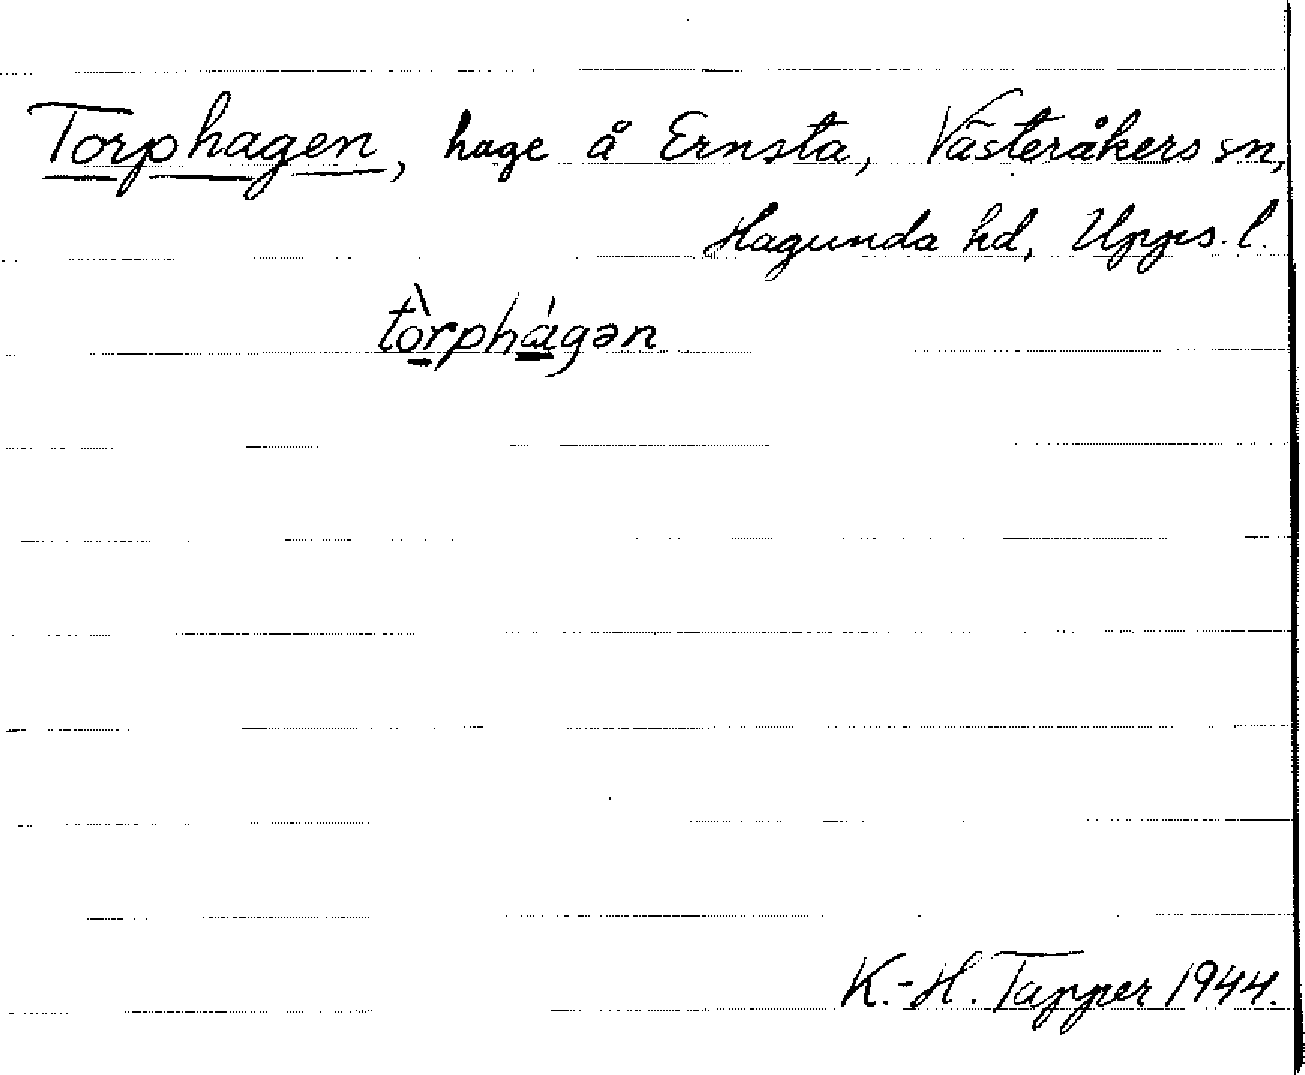 Torphagen, hage å Ernsta, Västeråkers sn,
Hagunda hd, Upps. l.
tòrphágən
K.-H. Tapper 1944.